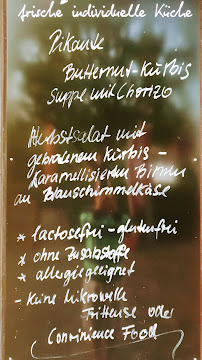 frische individuelle Küche
Pikante
Butternut-Kürbis
Suppe mit Chorizo
Herbstsalat mit
gebratenem Kürbis -
Karamellisierten Birnen
an Blauschimmelkäse
* lactosefrei-glutenfrei
* ohne Zusatzstoffe
* allergiegeeignet
- Keine Mikrowelle
Fritteuse oder
Convinience Food